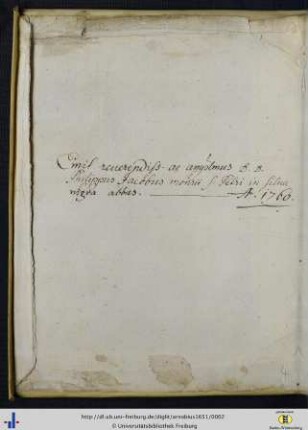 Emit reverendiss. ac amplmus D. D.
Philippus Jacobus monrii S. Petri in silva
nigra abbas. A. 1760.
4.
http://dl.ub.uni-freiburg.de/diglit/arnobius1631/0002
© Universitätsbibliothek Freiburg
Baden-Württemberg